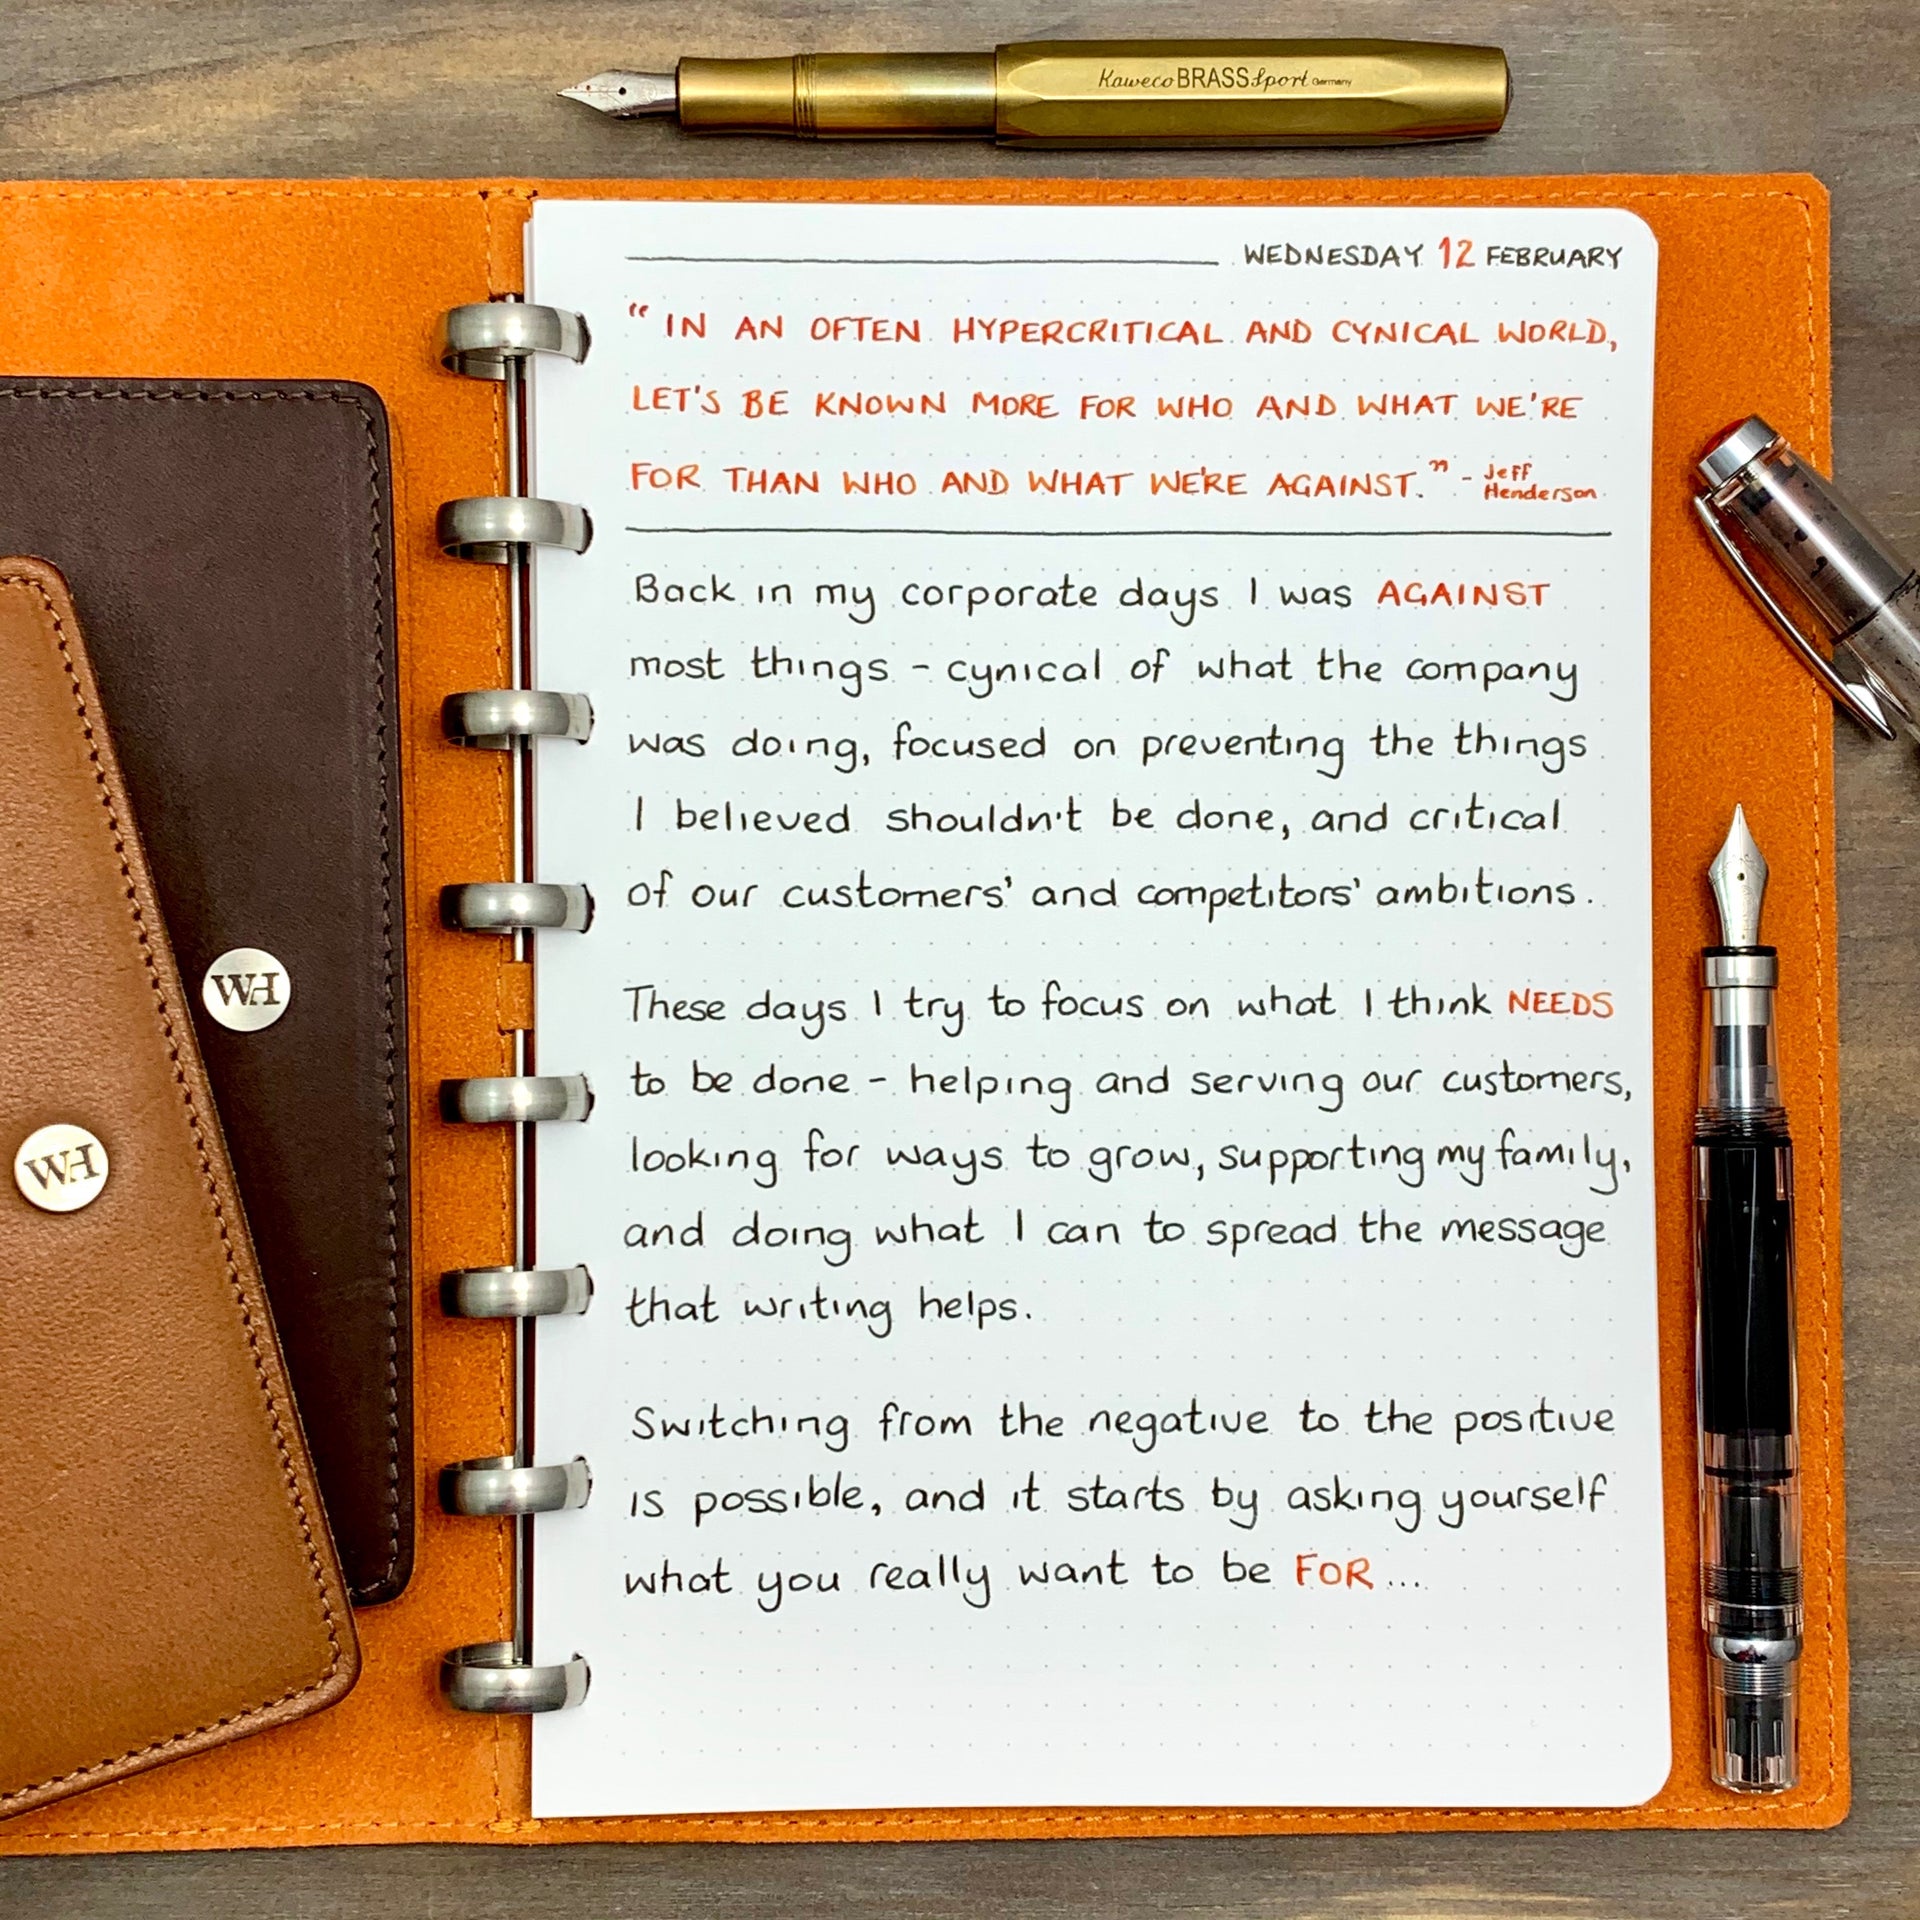 Kaweco BRASS Sport Germany
WEDNESDAY 12 FEBRUARY
“IN AN OFTEN HYPERCRITICAL AND CYNICAL WORLD,
LET'S BE KNOWN MORE FOR WHO AND WHAT WE'RE
FOR THAN WHO AND WHAT WE'RE AGAINST.” - Jeff
Henderson
Back in my corporate days I was AGAINST
most things - cynical of what the company
was doing, focused on preventing the things
I believed shouldn't be done, and critical
of our customers' and competitors' ambitions.
These days I try to focus on what I think NEEDS
to be done - helping and serving our customers,
looking for ways to grow, supporting my family,
and doing what I can to spread the message
that writing helps.
Switching from the negative to the positive
is possible, and it starts by asking yourself
what you really want to be FOR...
WH
WH